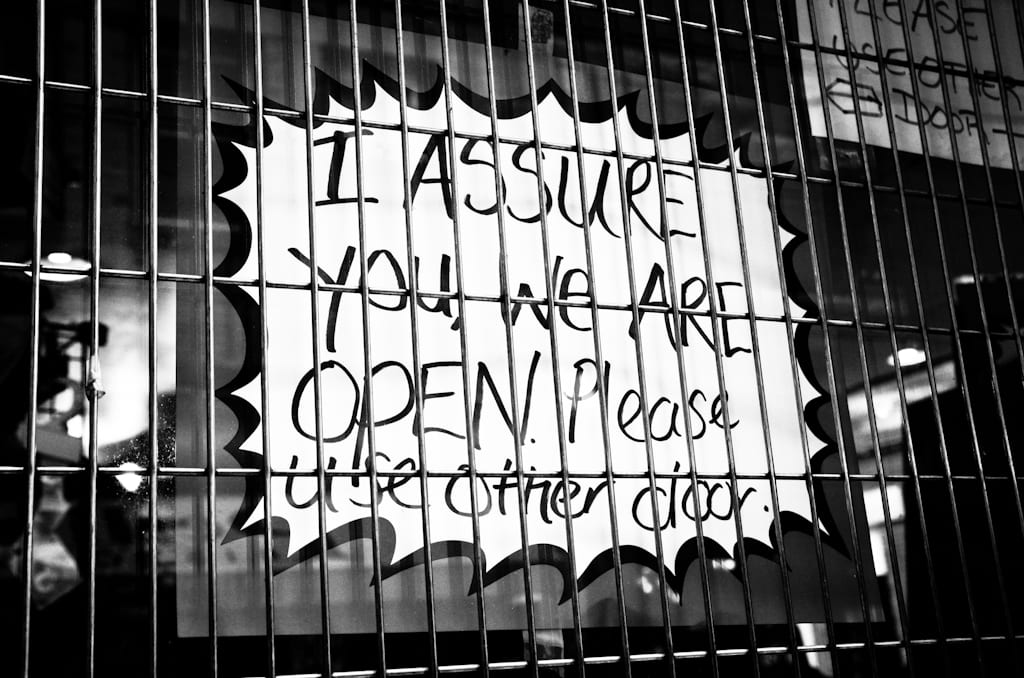 I ASSURE
YOU, WE ARE
OPEN. Please
use other door.
PLEASE
USE OTHER
DOOR